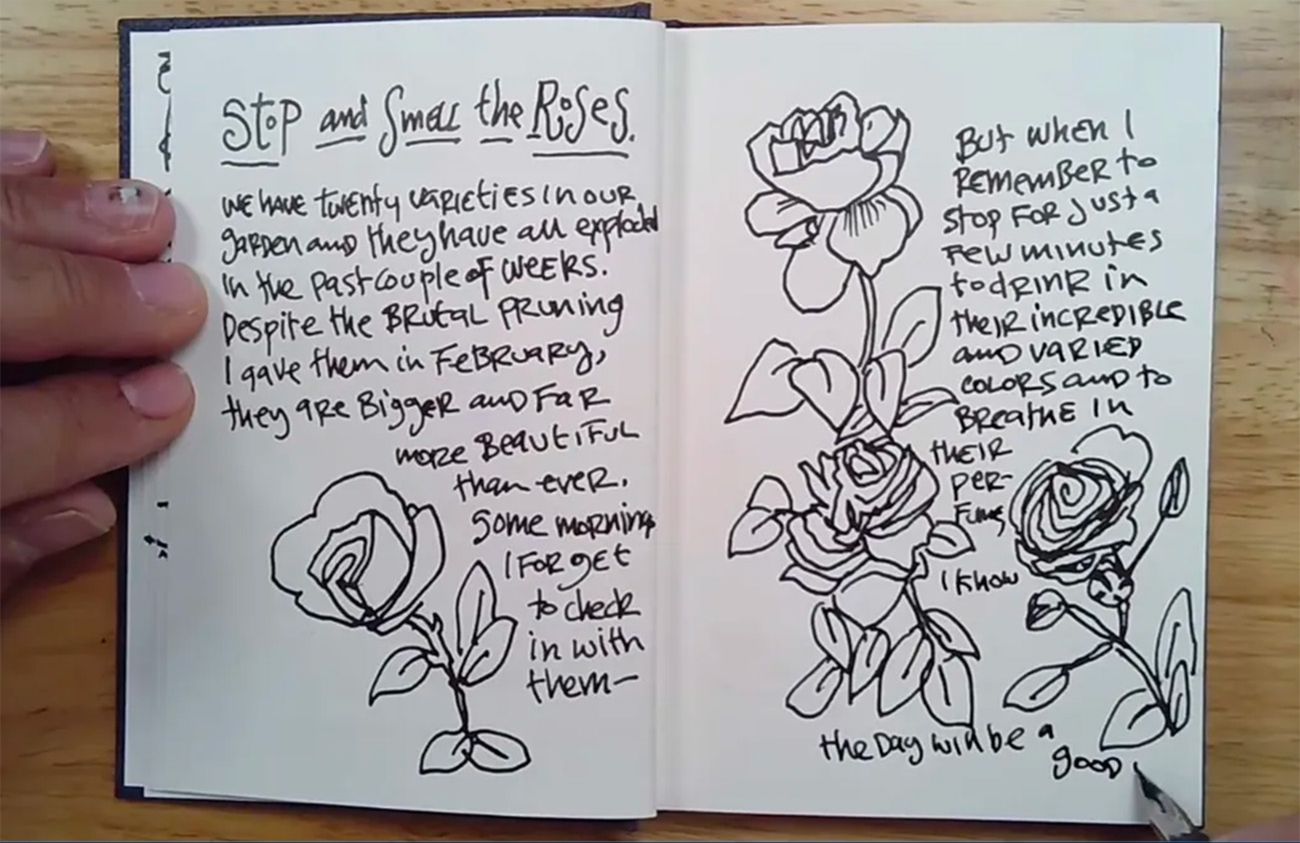 Stop and Smell the Roses.
We have twenty varieties in our
garden and they have all exploded
in the past couple of weeks.
Despite the brutal pruning
I gave them in February,
they are bigger and far
more beautiful
than ever.
Some mornings
I forget
to check
in with
them—
But when I
remember to
stop for just a
few minutes
to drink in
their incredible
and varied
colors and to
breathe in
their
per-
fume
I know
the day will be a
good